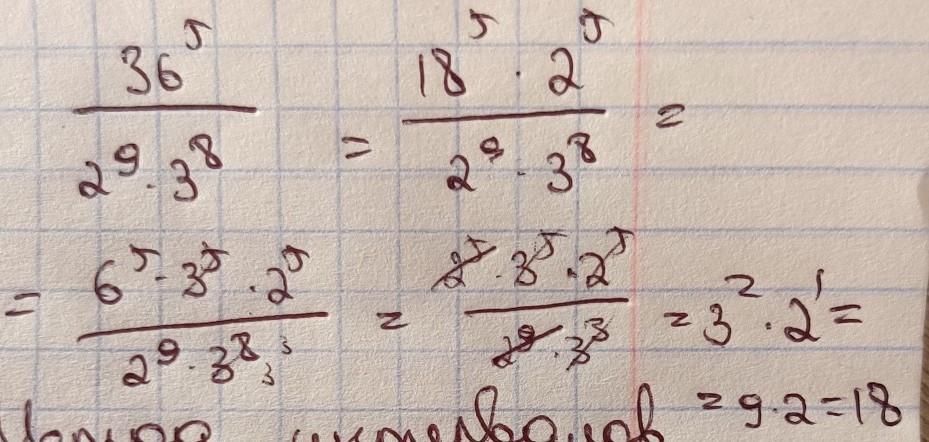 36⁵ / (2⁹ · 3⁸) = (18⁵ · 2⁵) / (2⁹ · 3⁸) =
= (6⁵ · 3⁵ · 2⁵) / (2⁹ · 3⁸) = (2⁵ · 3⁵ · 2⁵) / (2⁹ · 3³) = 3² · 2¹ =
= 9 · 2 = 18